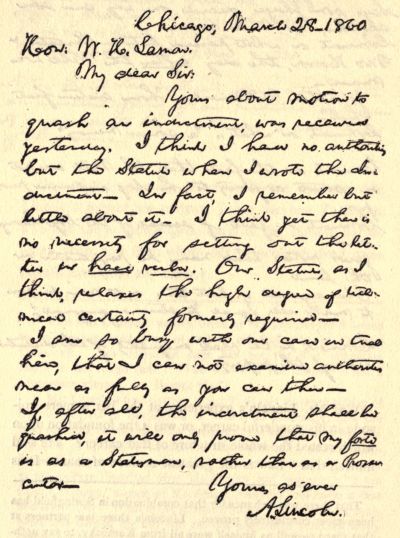 Chicago, March 28-1860
Hon: W. H. Lamon.
My dear Sir:
Yours about motion to
quash an indictment, was received
yesterday. I think I had no authority
but the Statute when I wrote the In-
dictment- In fact, I remember but
little about it- I think yet there is
no necessity for setting out the let-
ter in haec verba. Our Statute, as I
think, relaxes the high degree of tech-
nical certainty formerly required-
I am so busy with our case on trial
here, that I can not examine authorities
near as fully as you can there-
If, after all, the indictment shall be
quashed, it will only prove that my forte
is as a Statesman, rather than as a Prosec
cutor-
Yours, as ever
A. Lincoln.